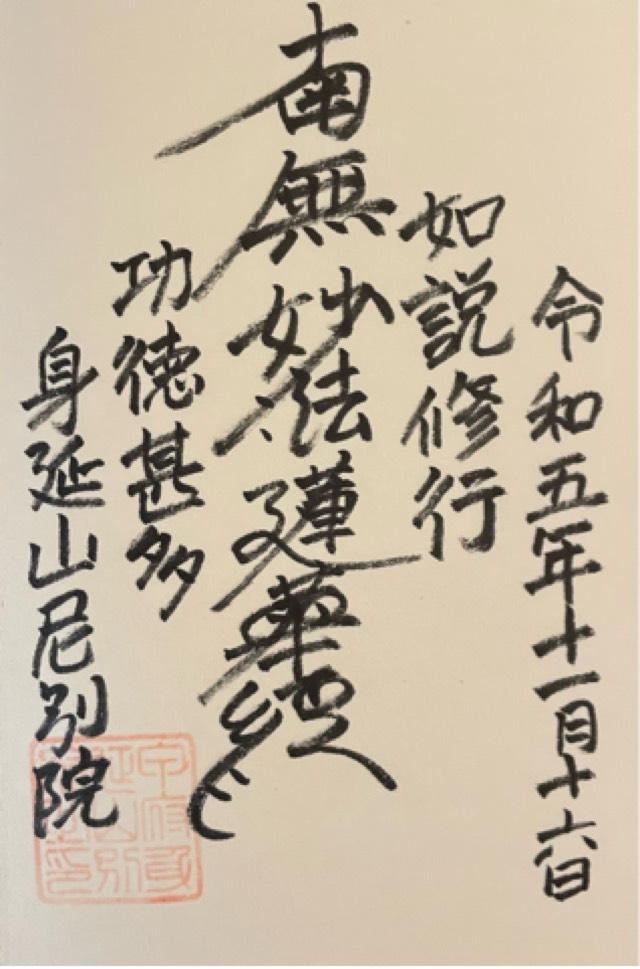 令和五年十一月十六日
如説修行
南無妙法蓮華経
功徳甚多
身延山尼別院